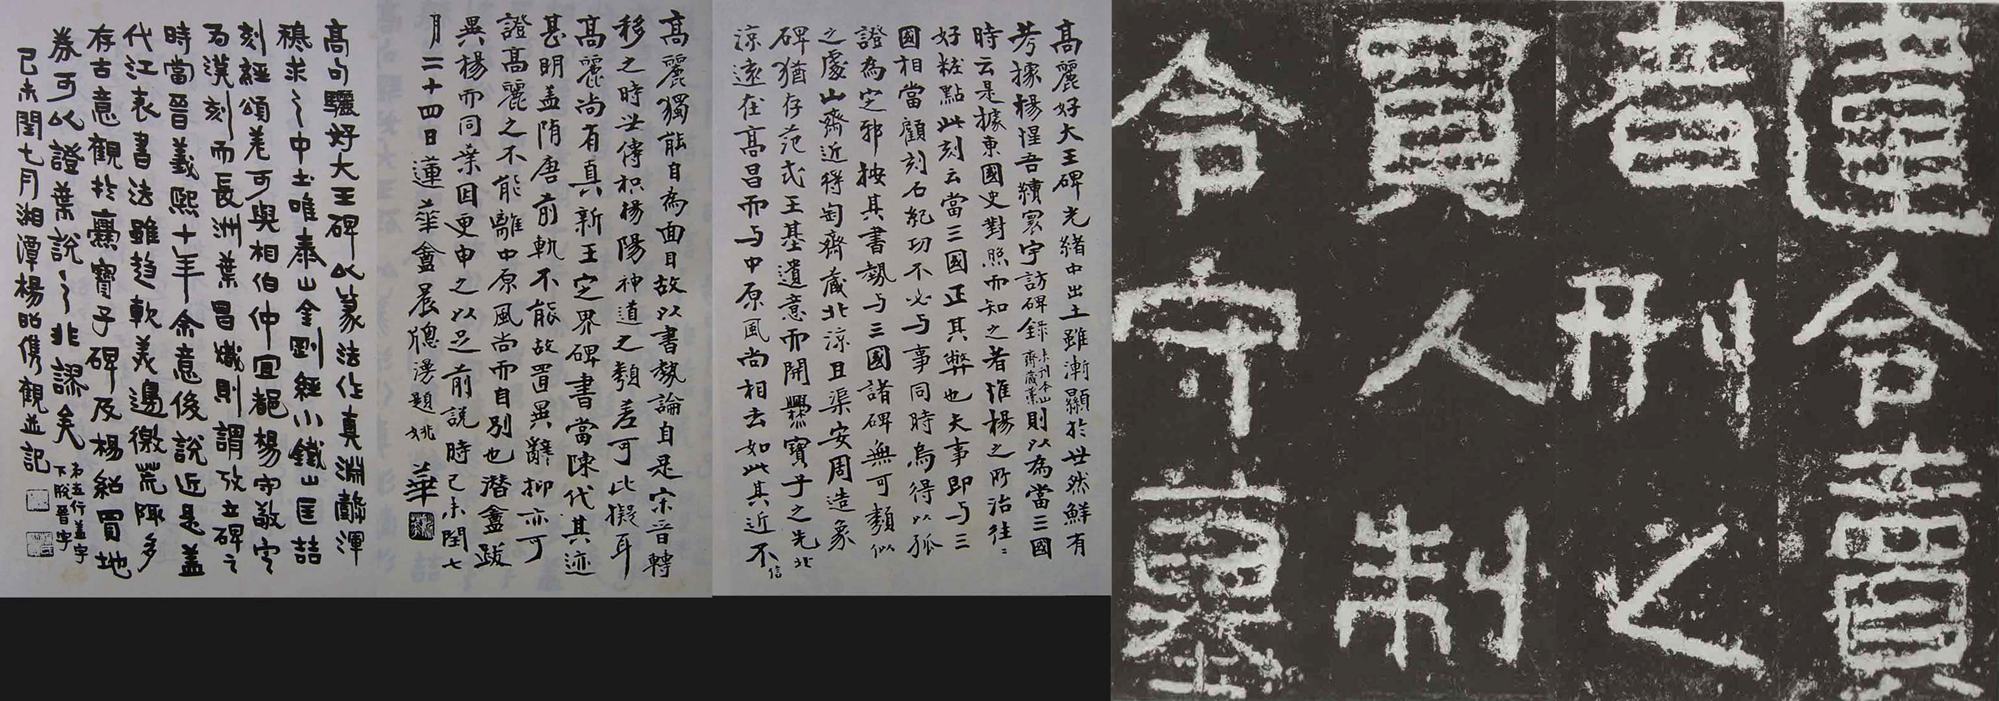 違令賣
者刑之
買人制
令守墓
高麗好大王碑光緒中出土雖漸顯於世然鮮有
考據楊惺吾續寰宇訪碑錄未刊本山齋藏藁則以為當三國
時云是據東國史對照而知之者維楊之所治往〻
好粧點此刻云當三國正其弊也夫事即与三
國相當顧刻石紀功不必与事同時烏得以孤
證為定邪按其書勢与三國諸碑無可類似
之處山齋近得匋齋藏北涼且渠安周造象
碑猶存范式王基遺意而開爨寶子之先北
涼遠在高昌而与中原風尚相去如此其近不信
高麗獨能自為面目故以書勢論自是宋晉轉
移之時世傳枳楊陽神道之類差可比擬耳
高麗尚有真新王定界碑書當陳代其迹
甚明蓋隋唐前軌不能故置異辭抑亦可
證高麗之不能離中原風尚而自別也潛盦跋
異楊而同葉因更申之以足前說時己未閏七
月二十四日蓮華盦晨牕漫題姚華
高句驪好大王碑以篆法作真淵雝渾
穆求之中土唯泰山金剛經小鐵山匡喆
刻經頌差可與相伯仲宜都楊守敬定
為漢刻而長洲葉昌熾則謂攷立碑之
時當晉義熙十年余意後說近是蓋
代江表書法雖趋軟美邊徼荒陬多
存古意觀於爨寶子碑及楊紹買地
券可以證葉說之非謬矣右五行蓋字下脫晉字
己未閏七月湘潭楊昭儁觀並記